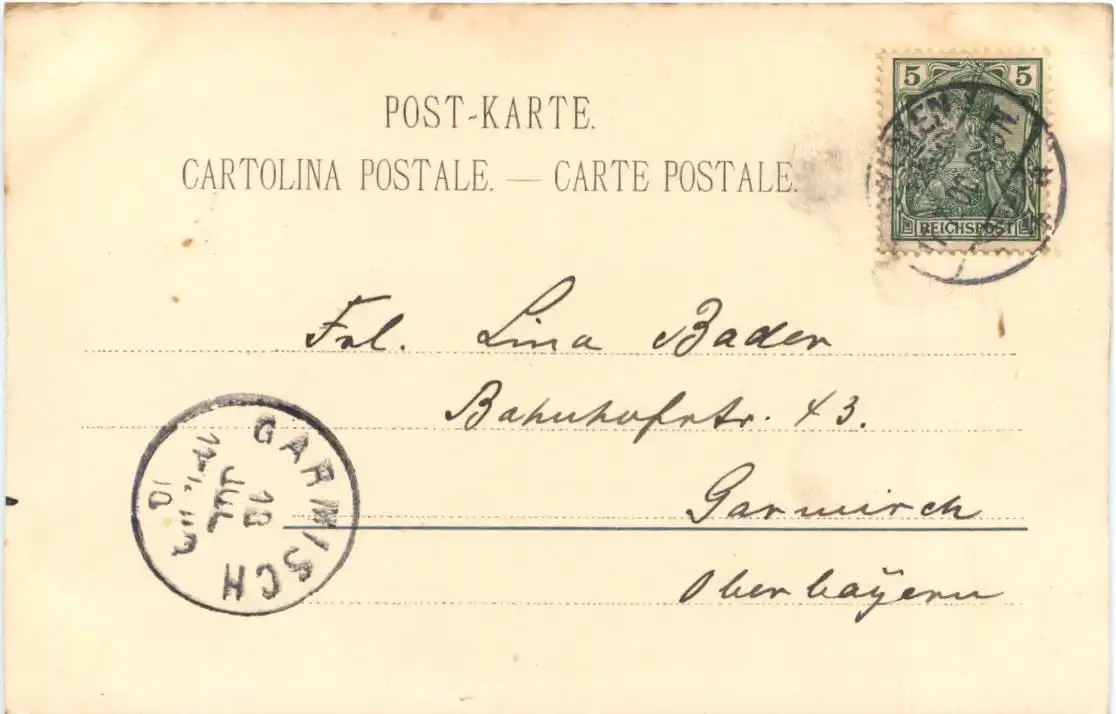 POST-KARTE.
CARTOLINA POSTALE. — CARTE POSTALE.
5 5
REICHSPOST
Frl. Lina Bader
Bahnhofstr. 43.
Garmisch
Oberbayern
GARMISCH
JUL